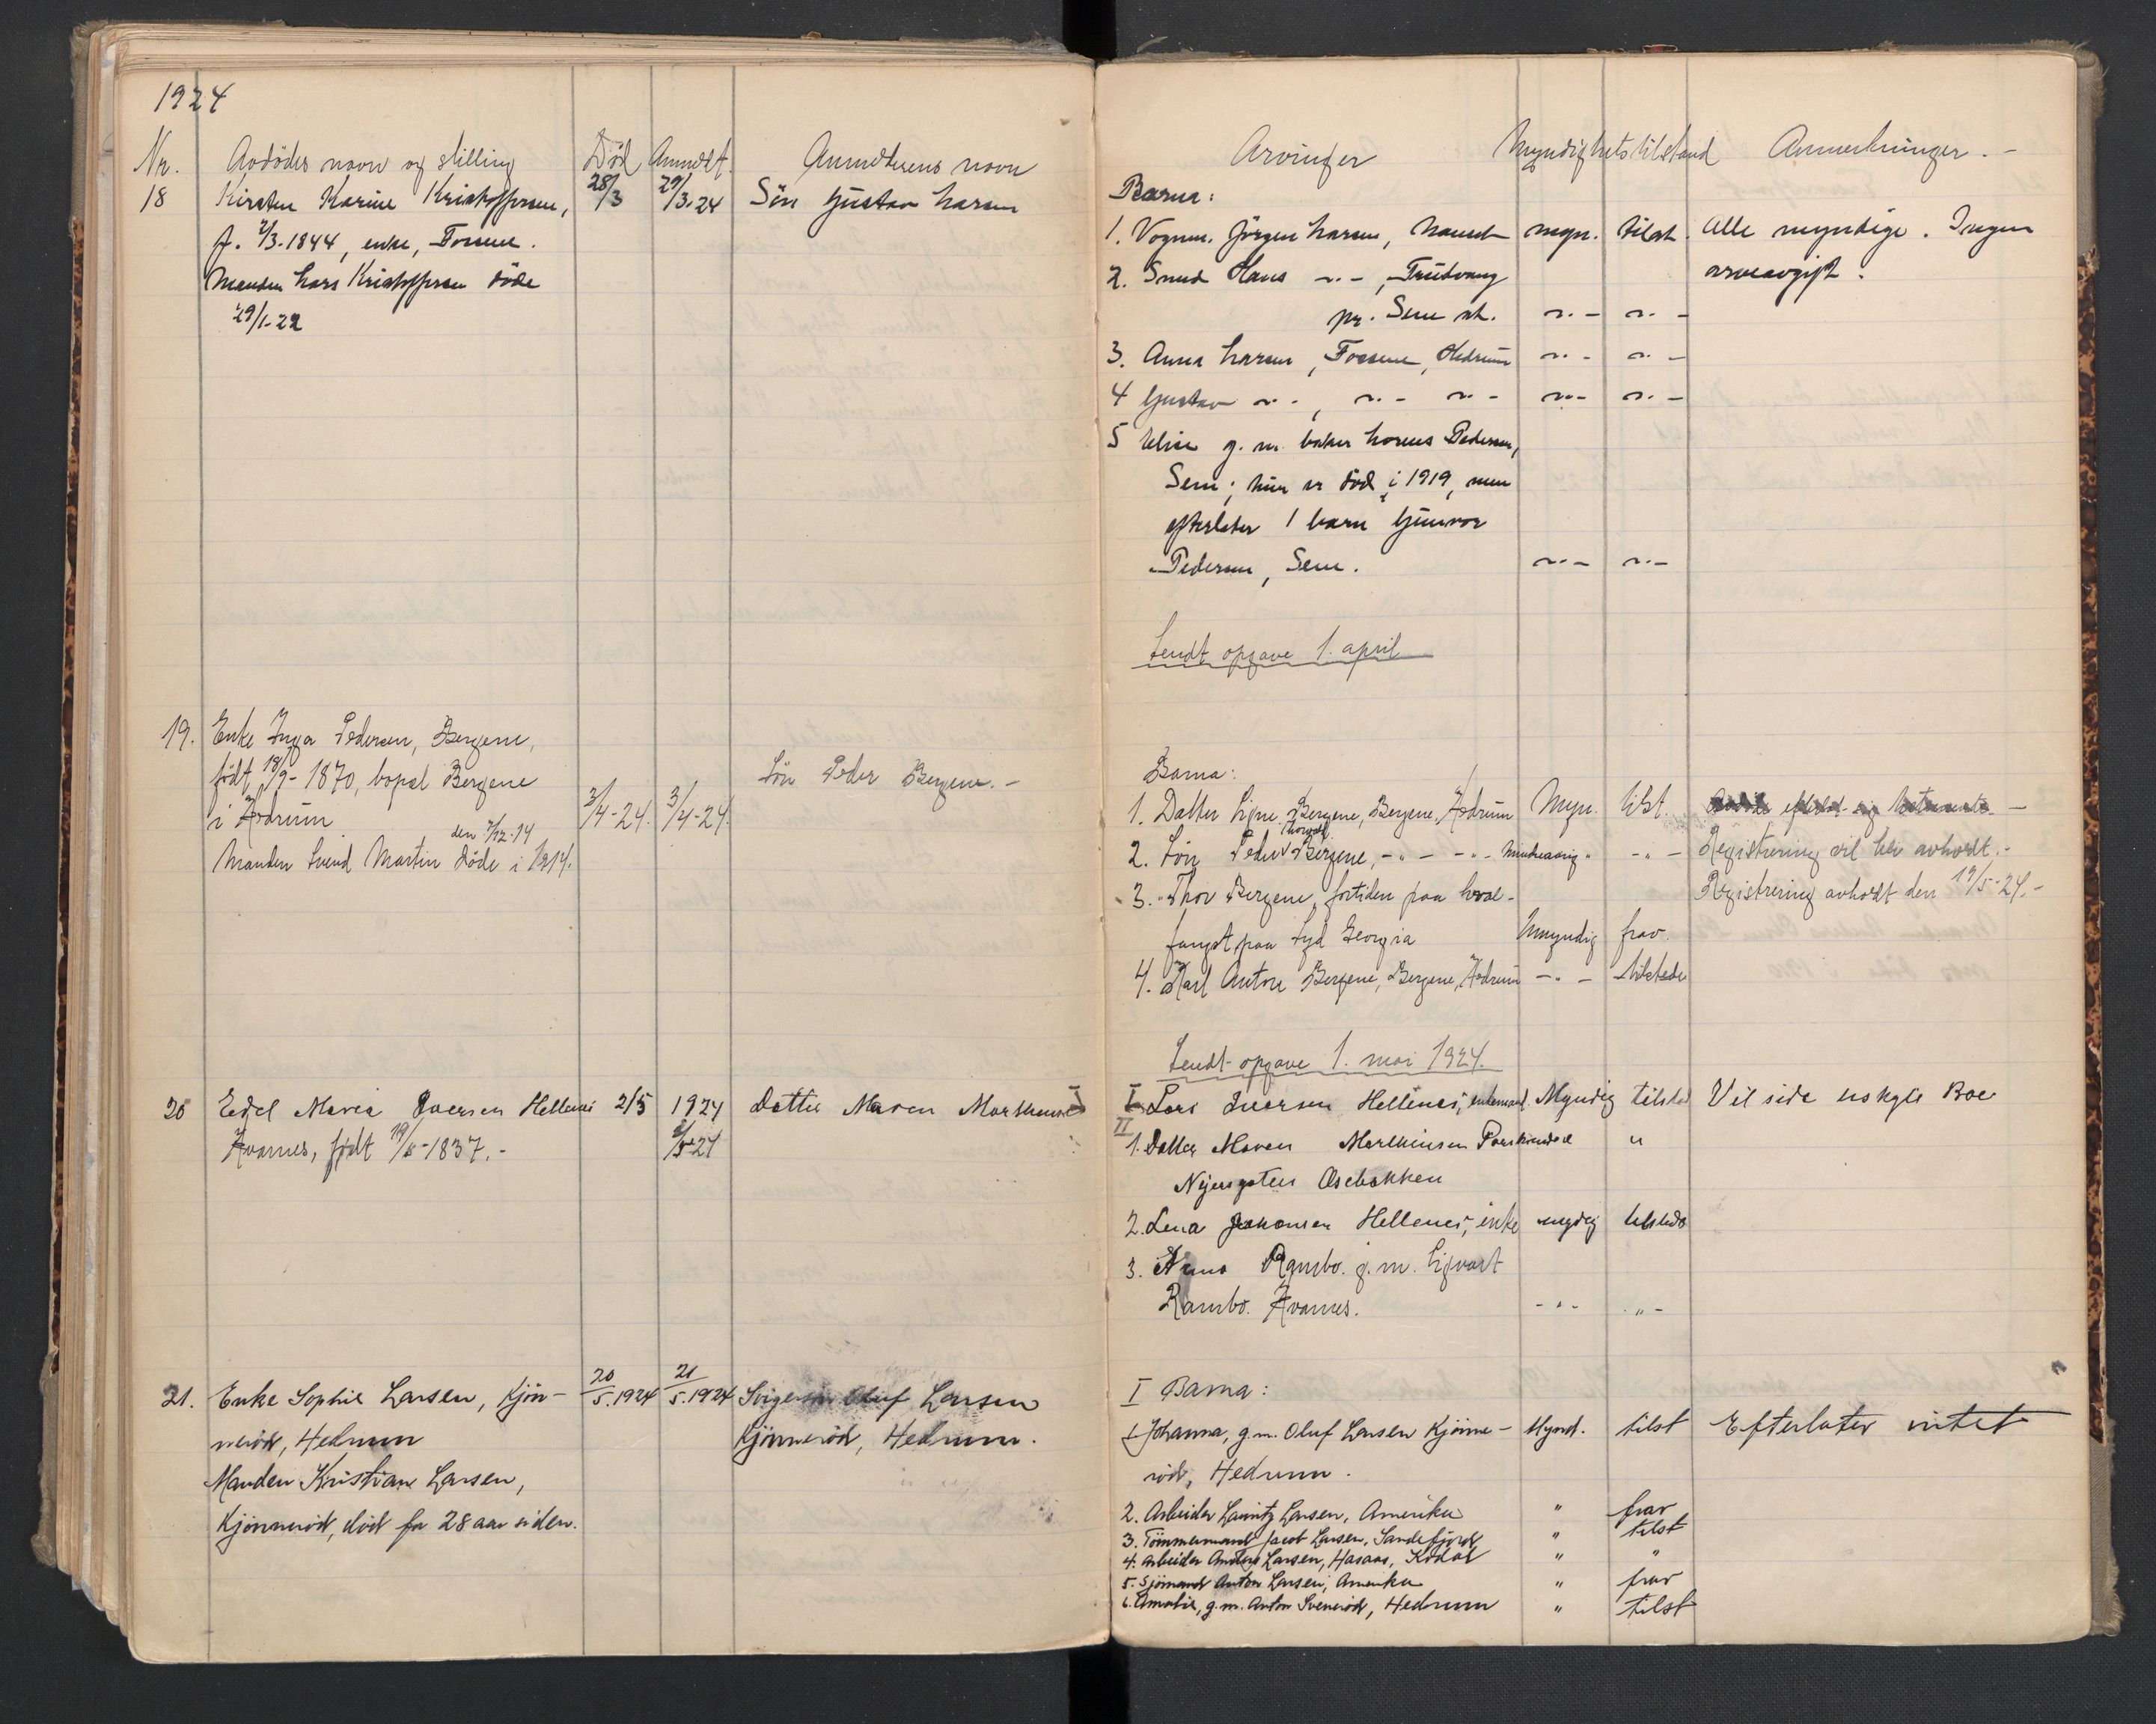 1924
Nr. Avdödes navn og stilling Död Anmeldt. Anmelderens navn
18 Kirsten Karine Kristoffersen, 28/3 29/3-24 Sön Gustav Larsen
f. 2/3-1844, enke, Fossene.
Manden Lars Kristoffersen döde
29/1-22
19. Enke Inga Pedersen, Bergene,
födt 18/9-1870, bopæl Bergene Sön Peder Bergene.-
i Hedrum 3/4-24. 3/4-24.
den 7/12-14
Manden Svend Martin döde i 1914.
20 Edel Maria Iversen Hellenes 2/5 1924 Datter Maren Marthinsen
Kvarnes, født 19/5-1837.- /5-24
21. Enke Sophie Larsen, Kjön- 20/5.1924 21/5.1924 Svigersön Oluf Larsen
neröd, Hedrum Kjönneröd, Hedrum.
Manden Kristian Larsen,
Kjönneröd, död for 28 aar siden.
Arvinger Myndighetstilstand Anmerkninger.-
Barna:
1. Vognm. Jörgen Larsen, Nanset myn. tilst. Alle myndige. Ingen
2. Smed Hans -"-, Trudvang arveavgift.
pr. Sem st. -"- -"-
3. Anna Larsen, Fossene, Hedrum -"- -"-
4 Gustav -"-, -"- -"- -"- -"-
5 Elise g. m. baker Lorens Pedersen,
Sem; hun er död i 1919, men
efterlater 1 barn Gunvor
Pedersen, Sem. -"- -"-
Sendt opgave 1. april
Barna:
1. Datter Signe Bergene, Bergene, Hedrum Myn. tilst.
2. Sön Peder Bergene, -"- -"- Mindreaarig -"- Registrering vil bli avholdt.-
3. Thor Bergene, fortiden paa hval- Registrering avholdt den 19/5-24.-
fangst paa Syd Georgia Umyndig frav.
4. Karl Anton Bergene, Bergene, Hedrum -"- tilstede
Sendt opgave 1. mai 1924.
I Lars Iversen Hellenes, enkemand Myndig tilsted Vil side i uskifte Boe
II
1. Datter Maren Marthinsen Porskrunds "
Nyensgaten Osebakken
2. Lena Johansen Hellenes, enke mydig tilstede
3. Anna Rambo. g. m. Sigvart
Rambo. Kvarnes. -"- -"-
I Barna:
1 Johanna, g.m. Oluf Larsen Kjönne- Mynd. tilst Efterlater intet
röd, Hedrum.
2. Arbeider Lauritz Larsen, Amerika " frav
3. Tömmermand Jacob Larsen, Sandefjord " tilst
4. Arbeider Anders Larsen, Hasaas, Kodal " "
5. Sjömand Anton Larsen, Amerika " frav
6. Amalie, g.m. Anton Sveneröd, Hedrum " tilst